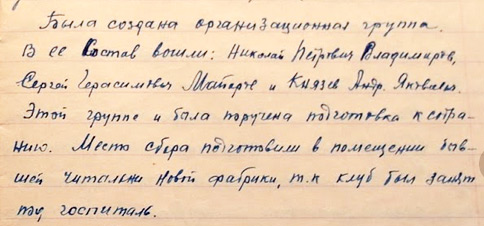 Была создана организационная группа.
В ее состав вошли: Николай Петрович Владимиров,
Сергей Герасимович и Князев Андр. Яковлевич.
Этой группе и была поручена подготовка к собра-
нию. Место сбора подготовили в помещении быв-
шей читальни Новой фабрики, т.к клуб был занят
под госпиталь.